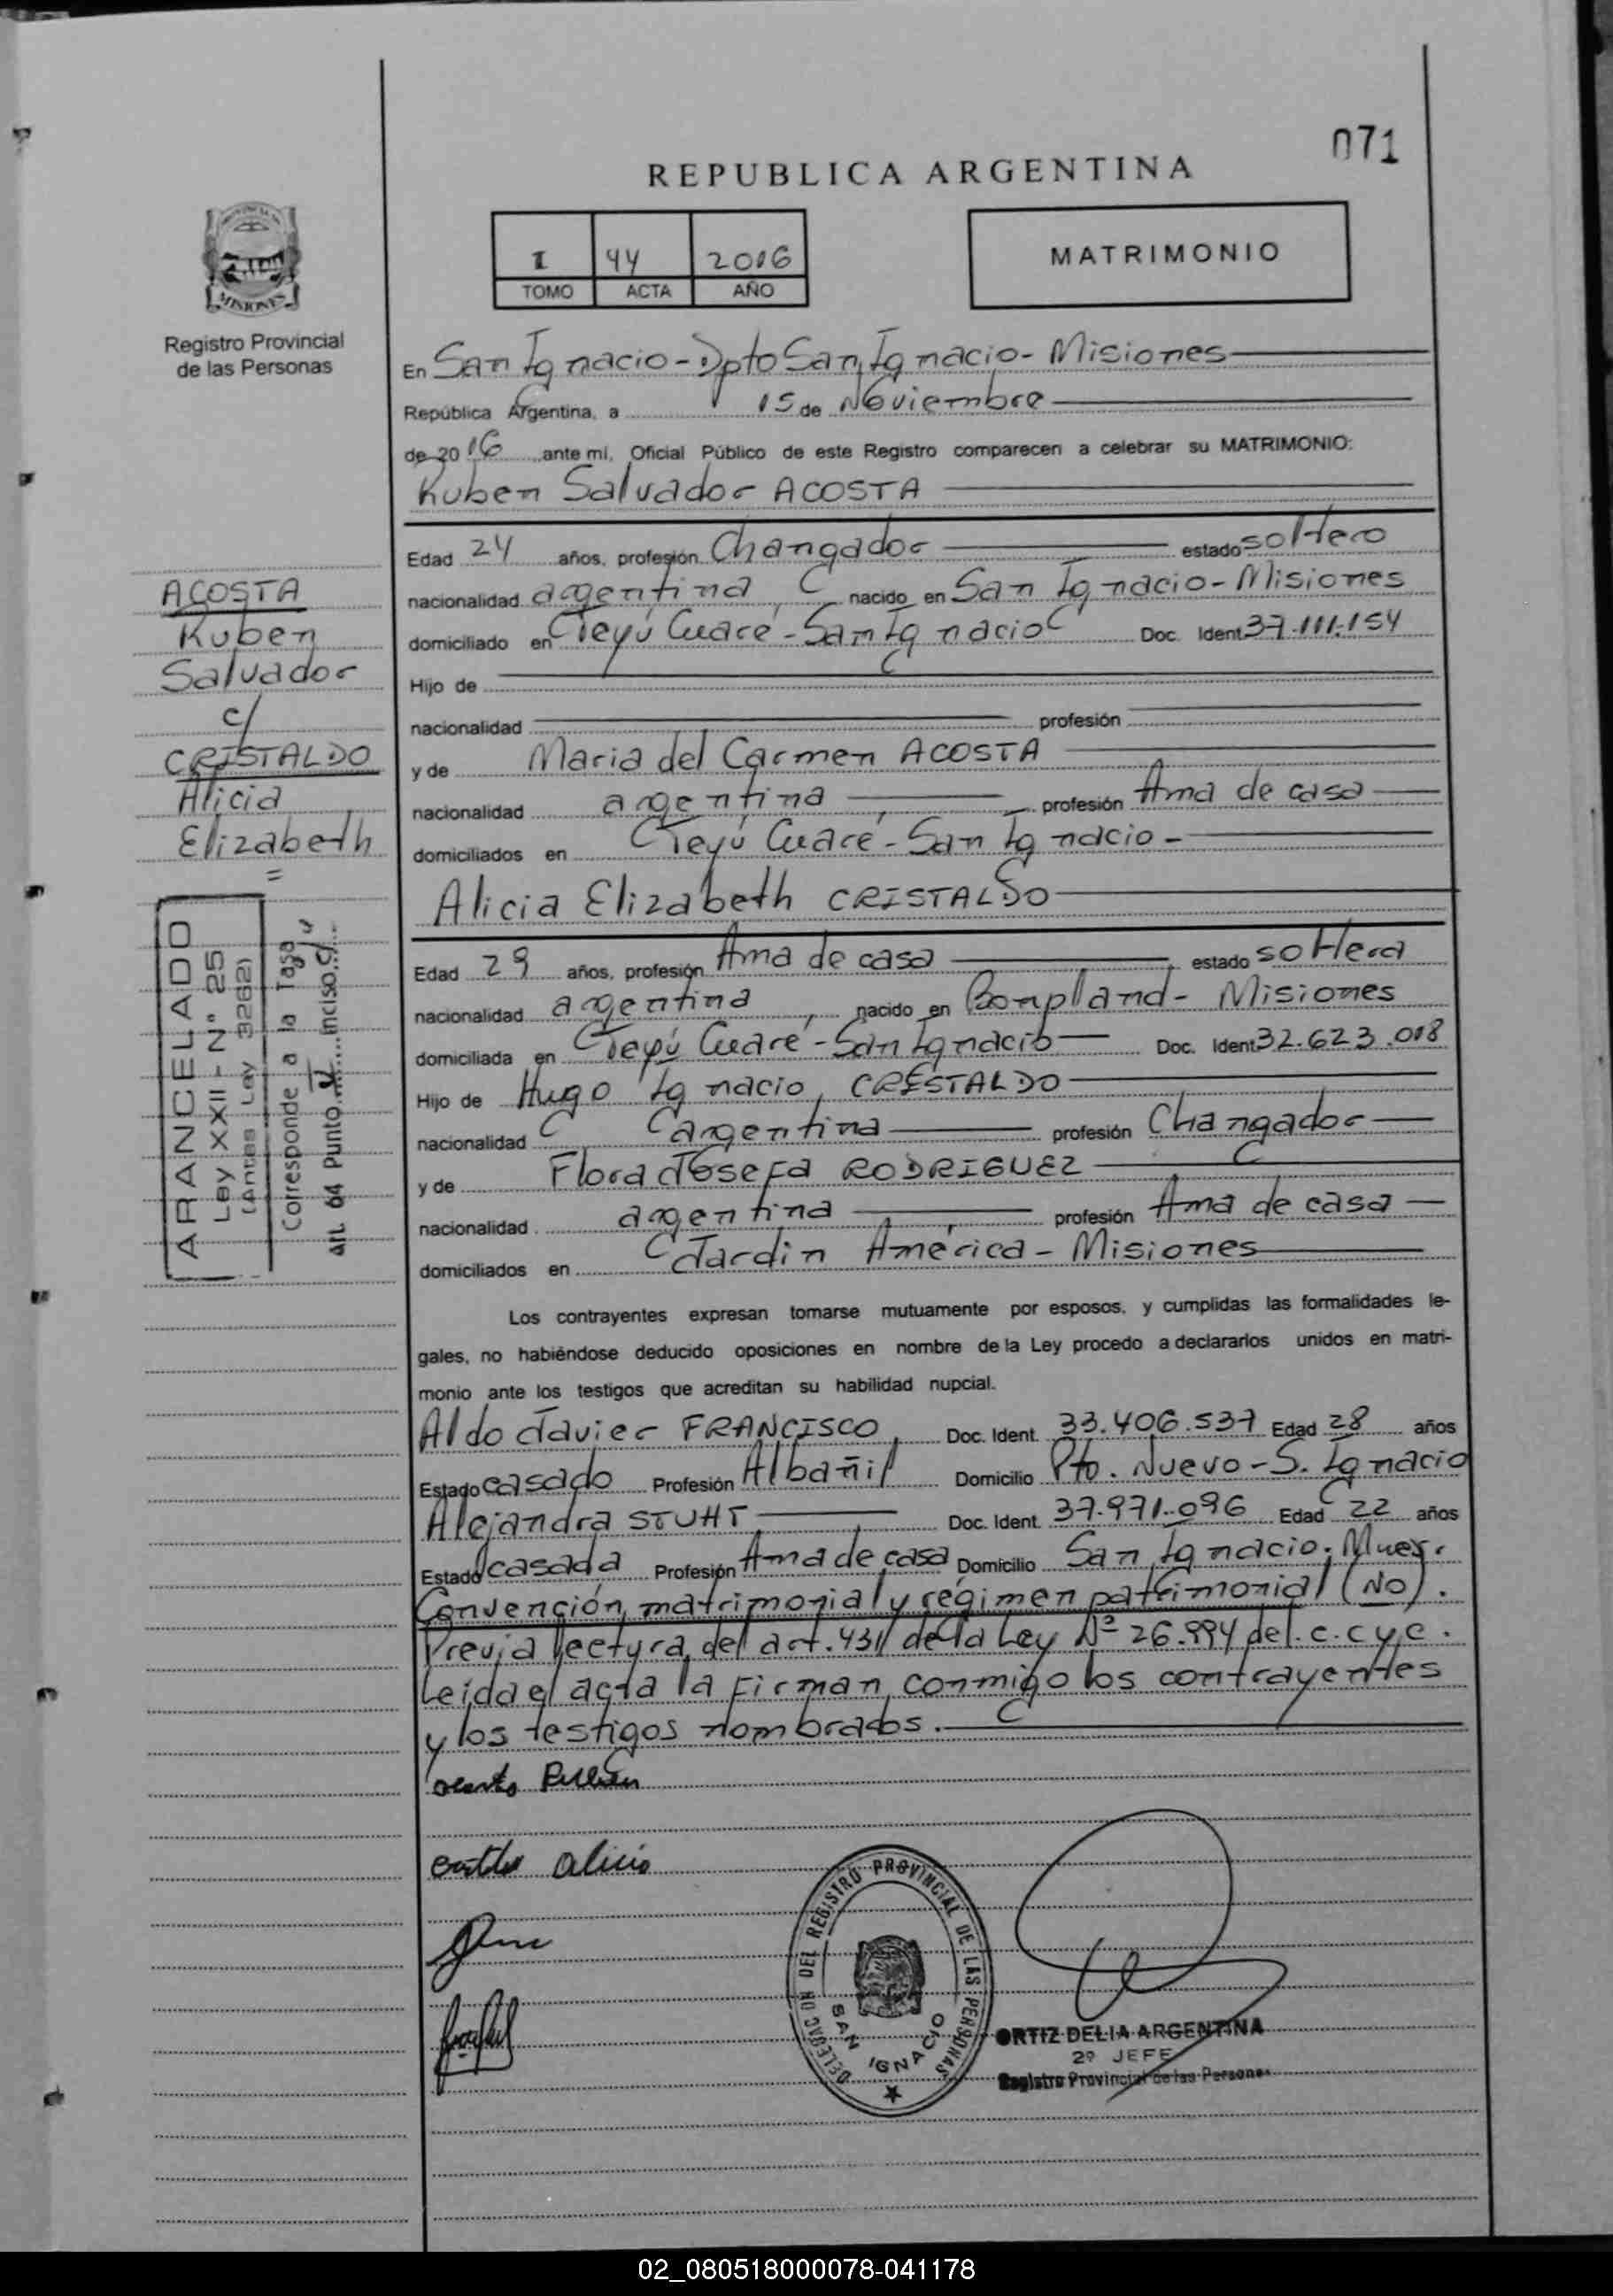 071
REPUBLICA ARGENTINA
I 44 2016
TOMO ACTA AÑO
MATRIMONIO
MISIONES
Registro Provincial
de las Personas
En San Ignacio - Dpto San Ignacio - Misiones
República Argentina, a 15 de Noviembre
de 2016 ante mí, Oficial Público de este Registro comparecen a celebrar su MATRIMONIO:
Ruben Salvador ACOSTA
Edad 24 años, profesión Changador estado soltero
nacionalidad argentina, nacido en San Ignacio - Misiones
domiciliado en Teyú Cuaré - San Ignacio Doc. Ident 37.111.154
Hijo de
nacionalidad profesión
y de Maria del Carmen ACOSTA
nacionalidad argentina, profesión Ama de casa
domiciliados en Teyú Cuaré - San Ignacio -
Alicia Elizabeth CRISTALDO
Edad 29 años, profesión Ama de casa estado soltera
nacionalidad argentina, nacido en Bonpland - Misiones
domiciliada en Teyú Cuaré - San Ignacio Doc. Ident 32.623.018
Hijo de Hugo Ignacio CRISTALDO
nacionalidad argentina profesión Changador
y de Flora Josefa RODRIGUEZ
nacionalidad argentina profesión Ama de casa
domiciliados en Jardin América - Misiones
Los contrayentes expresan tomarse mutuamente por esposos, y cumplidas las formalidades le-
gales, no habiéndose deducido oposiciones en nombre de la Ley procedo a declararlos unidos en matri-
monio ante los testigos que acreditan su habilidad nupcial.
Aldo Javier FRANCISCO, Doc. Ident. 33.406.537 Edad 28 años
Estado casado Profesión Albañil Domicilio Pto. Nuevo - S. Ignacio
Alejandra STUHT Doc. Ident. 37.971.096 Edad 22 años
Estado casada Profesión Ama de casa Domicilio San Ignacio; Mnes.
Convención matrimonial y régimen patrimonial (No).
Previa lectura del art. 431 de la Ley Nº 26.994 del. c. c y c.
Leida el acta la Firman conmigo los contrayentes
y los testigos nombrados.
ACOSTA
Ruben
Salvador
c/
CRISTALDO
Alicia
Elizabeth
=
ARANCELADO
Ley XXII - N° 25
(Antes Ley 3262)
Corresponde a la Tasa
Art. 64 Punto inciso
Acosta Ruben
Alicia
DELEGACION DEL REGISTRO PROVINCIAL DE LAS PERSONAS
SAN IGNACIO
ORTIZ DELIA ARGENTINA
2º JEFE
Registro Provincial de las Personas
02_080518000078-041178